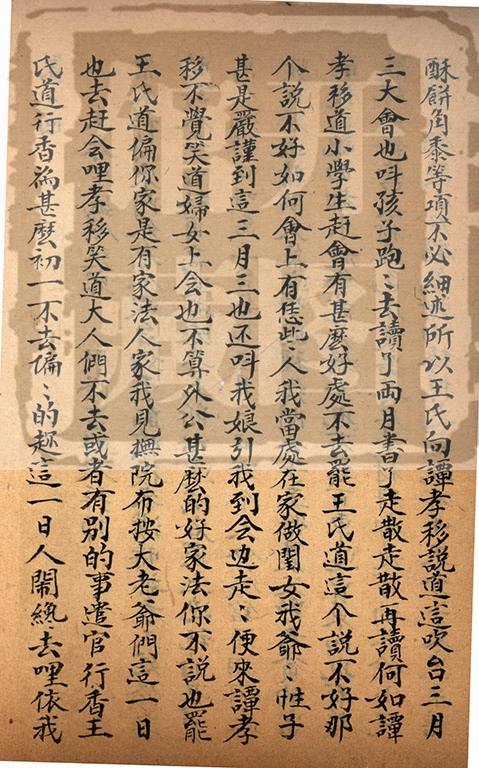 酥餅角黍等項不必細述所以王氏向譚孝移說道這吹台三月
三大會也叫孩子跑〻去讀了兩月書了走散走散再讀何如譚
孝移道小學生赶會有甚麼好處不去罷王氏道這个說不好那
个說不好如何會上有恁些〻人我當處在家做閨女我爺〻性子
甚是嚴謹到這三月三也还叫我娘引我到会边走〻便來譚孝
移不覺笑道婦女上会也不算外公甚麼的好家法你不說也罷
王氏道偏你家是有家法人家我見撫院布按大老〻爺們這一日
也去赶会哩孝移笑道大人們不去或者有别的事遣官行香王
氏道行香為甚麼初一不去偏〻的趂這一日人鬧纔去哩依我